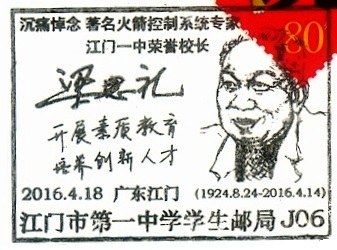 沉痛悼念 著名火箭控制系统专家
江门一中荣誉校长
80
梁思礼
开展素质教育
培养创新人才
2016.4.18 广东江门 (1924.8.24-2016.4.14)
江门市第一中学学生邮局J06